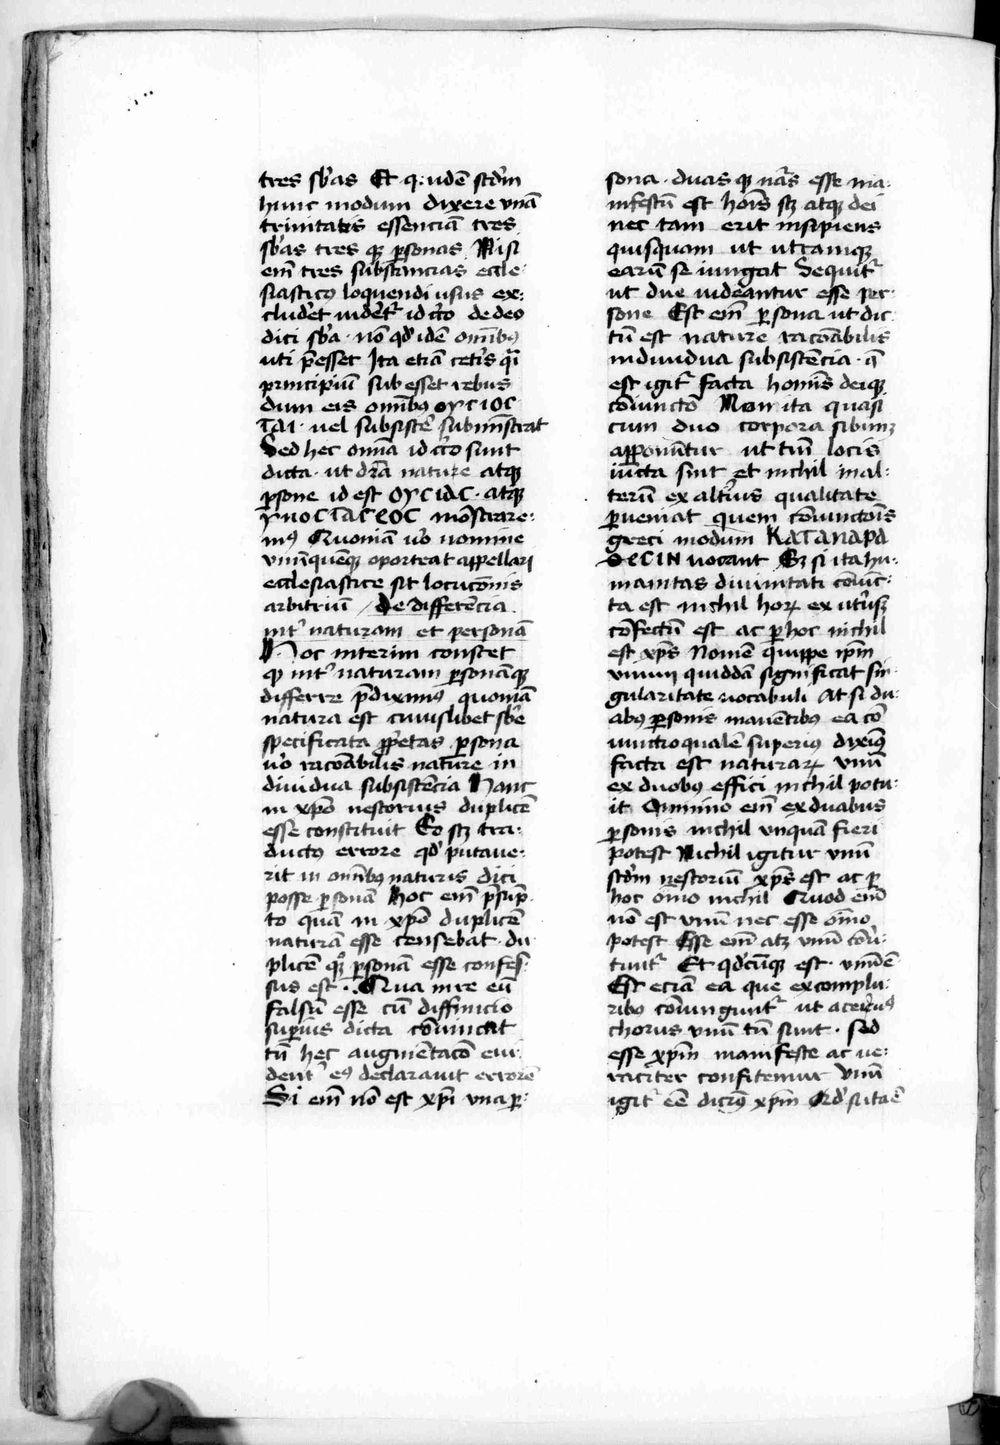 tres sb̄as Et q̇uidē scd̄m
hunc modum dixere vnā
trinitatis essenciā tres
sb̄as tres qꝫ ꝑsonas Nisi
em̄ tres substancias eccle-
siasticꝰ loquendi usus ex-
cludeꝛet videt᷑ id cꝛco de deo
dici sb̄a · nō qd̕ idē om̄ibꝰ
uti p̄esset Ita etiā cet̄is qͣi
principiū sub esset rebus
dum eis om̄ibꝰ OYCIOC
TAI · uel subsiste᷑ subministrat
Sed hec om̄ia id cꝛco sunt
dicta · ut dr̄a nature atqꝫ
ꝑsone id est OYCIAC · atqꝫ
YΠOCTACEOC mōstrare-
mꝰ Quoniā u̕o nomine
vnūquēqꝫ oporteat appellari
ecclesiastice sit locucōnis
arbitriū / De differēcia
int᷑ naturam et personā
Hoc interim constet
qꝫ int᷑ naturam ꝑsonāqꝫ
differre p̄diximꝰ quoniā
natura est cuiuslibet sb̄e
specificata ꝓp̄etas ꝑsona
u̕o racōabilis nature in
diuidua subsistēcia Hanc
in xp̄o nestorius duplicē
esse constituit Eo scꝫ tra-
ductꝰ errore qd̕ putaue-
rit in om̄ibꝰ naturis dici
posse ꝑsonā Hoc em̄ p̄sup̄-
to quā in xp̄o duplicē
naturā esse censebat · du
plicē qꝫ ꝑsonā esse confes-
sus est · Qua in re eū
falsū esse cū diffinicio
suꝑius dicta cōuincat
tū hec augmētacō eui
dent᷑ eꝰ declarauit errorē
Si em̄ nō est xp̄i una ꝑ-
sona · duas qꝫ nāꝛs esse ma-
nifestū est hōis scꝫ atqꝫ dei
nec tam erit insipiens
quisquam ut utramqꝫ
earū se iungat Sequit᷑
ut due uideantur esse per-
sone Est em̄ ꝑsona ut dic-
tū est nature racōabilis
indiuidua subsistēcia · q̄
est igit᷑ facta hominis deiqꝫ
cōiunctō Non ita quasi
cum duo corpora sibimꝫ
apponūtur ut tm̄ locis
iūcta sint et nichil in al-
terū ex alt̕ius qualitate
ꝑueniat quem cōiunctōis
greci modum KATAΠAPA
ΘECIN uocant Sꝫ si ita hu-
manitas diuinitati cōiūc-
ta est nichil hoꝝ ex ut̕usqꝫ
cōfectū est ac ꝑ hoc nichil
est xp̄s Nomē quippe ip̄m
vnum quiddā significat sin-
gularitate uocabuli At si du-
abꝰ ꝑsonis manētibꝰ ea cō
iunctio qualē superiꝰ diximꝰ
facta est naturaꝝ vnū
ex duobus effici nichil potu-
it Omnino em̄ ex duabus
ꝑsonis nichil vnquā fieri
potest Nichil igitur vnū
scd̄m nestoriū xp̄s est ac ꝑ
hoc om̄o nichil Quod em̄
nō est vnū nec esse om̄o
potest Esse em̄ atqꝫ vnū cōū-
tunt᷑ Et qd̕cūqꝫ est · vnū ē
Est eciā ea que ex complu-
ribꝰ cōiungunt᷑ ut aceruꝰ
chorus vnū tn̄ sunt · Sed
esse xp̄m manifeste ac ue-
raciter confitemur Vnū
igit᷑ eē dicimꝰ xp̄m Qd̕ si ita ē